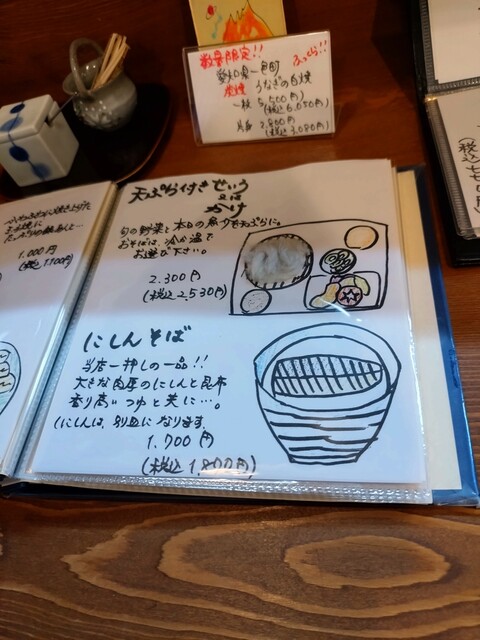 数量限定!!
愛知県一色町
炭焼 うなぎの白焼
ふっくら!!
一枚 5,500円
(税込 6,050円)
半身 2,800円
(税込 3,080円)
1,000円
(税込 1,100円)
天ぷら付きせいろ
又は
かけ
旬の野菜と本日の魚介を天ぷらに。
おそばは、冷か温で
お選び下さい。
2.300円
(税込 2,530円)
にしんそば
当店一押しの一品!!
大きな肉厚のにしんと昆布
香り高いつゆと共に…。
(にしんは、別皿になります
1.700円
(税込 1,800円)